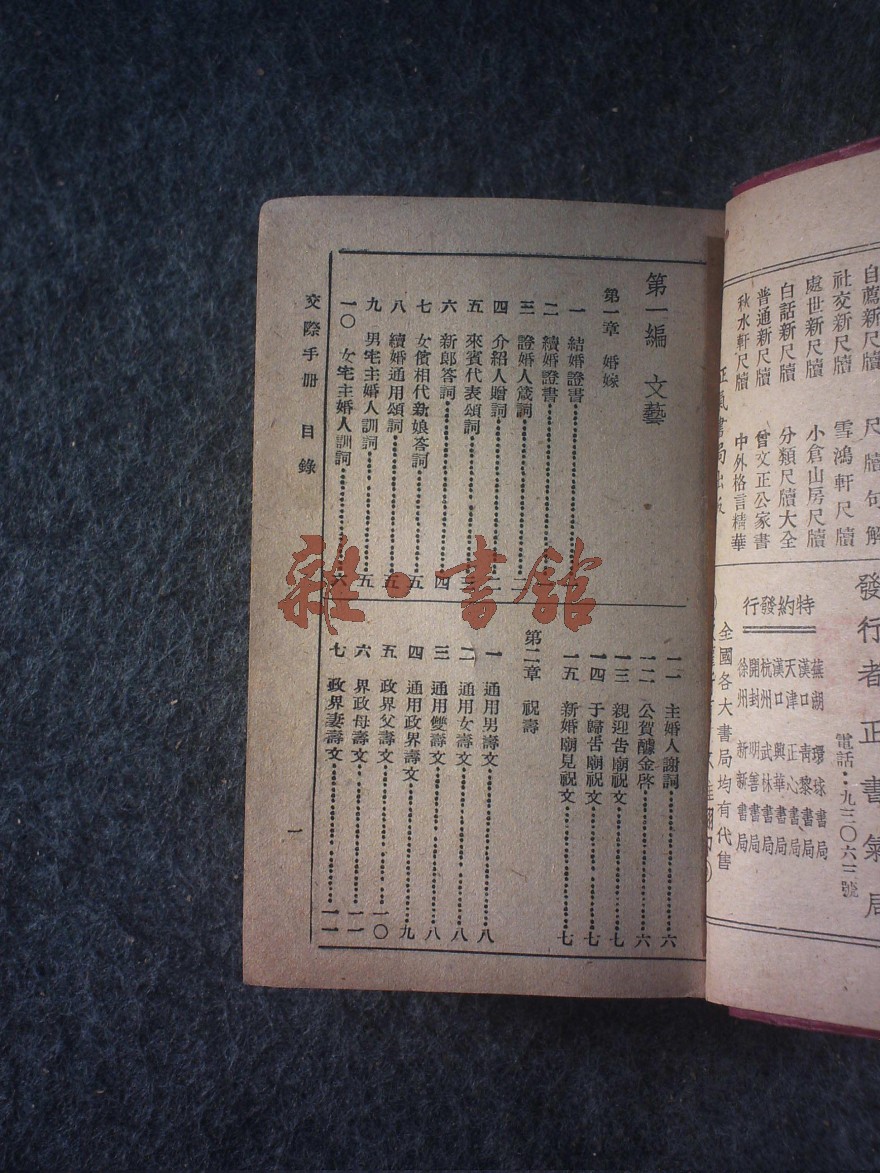 自薦新尺牘 尺牘句解
社交新尺牘 雪鴻軒尺牘
處世新尺牘 小倉山房尺牘
白話新尺牘 分類尺牘大全
普通新尺牘 曾文正公家書
秋水軒尺牘 中外格言精華
正氣書局出版
發行者正書氣局
電話‥九三〇六三號
特約發行
蕪湖 環球書局
漢口 青黎書局
天津 正心書局
漢口 興華書局
杭州 武林書局
開封 明善書局
徐州 新新書局
全國各大書局均有代售
第一編 文藝
第一章 婚嫁
一 結婚證書
二 續婚證書
三 證婚人箴詞 二
四 介紹人贈詞 二
五 來賓代表頌詞 三
六 新郎答詞 四
七 女儐相代新娘答詞 五
八 續婚通用頌詞 五
九 男宅主婚人訓詞 五
一〇 女宅主婚人訓詞 六
一一 主婚人謝詞 六
一二 公賀醵金啓 六
一三 親迎告廟祝文 七
一四 于歸告廟祝文 七
一五 新婚廟見祝文 七
第二章 祝壽
一 通用男壽文 八
二 通用女壽文 八
三 通用雙壽文 八
四 通用政界壽文 九
五 政界父壽文 一〇
六 界政母壽文 一一
七 政界妻壽文 一一
交際手冊 目錄
一
雜·書館